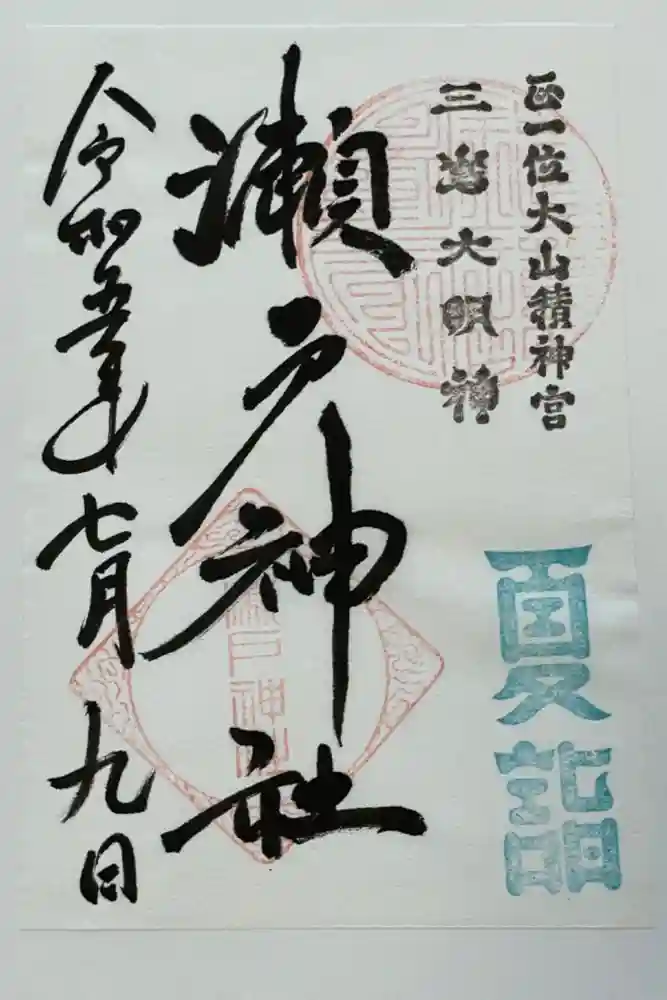 正一位大山積神宮
三島大明神
夏詣
瀬戸神社
令和五年七月九日